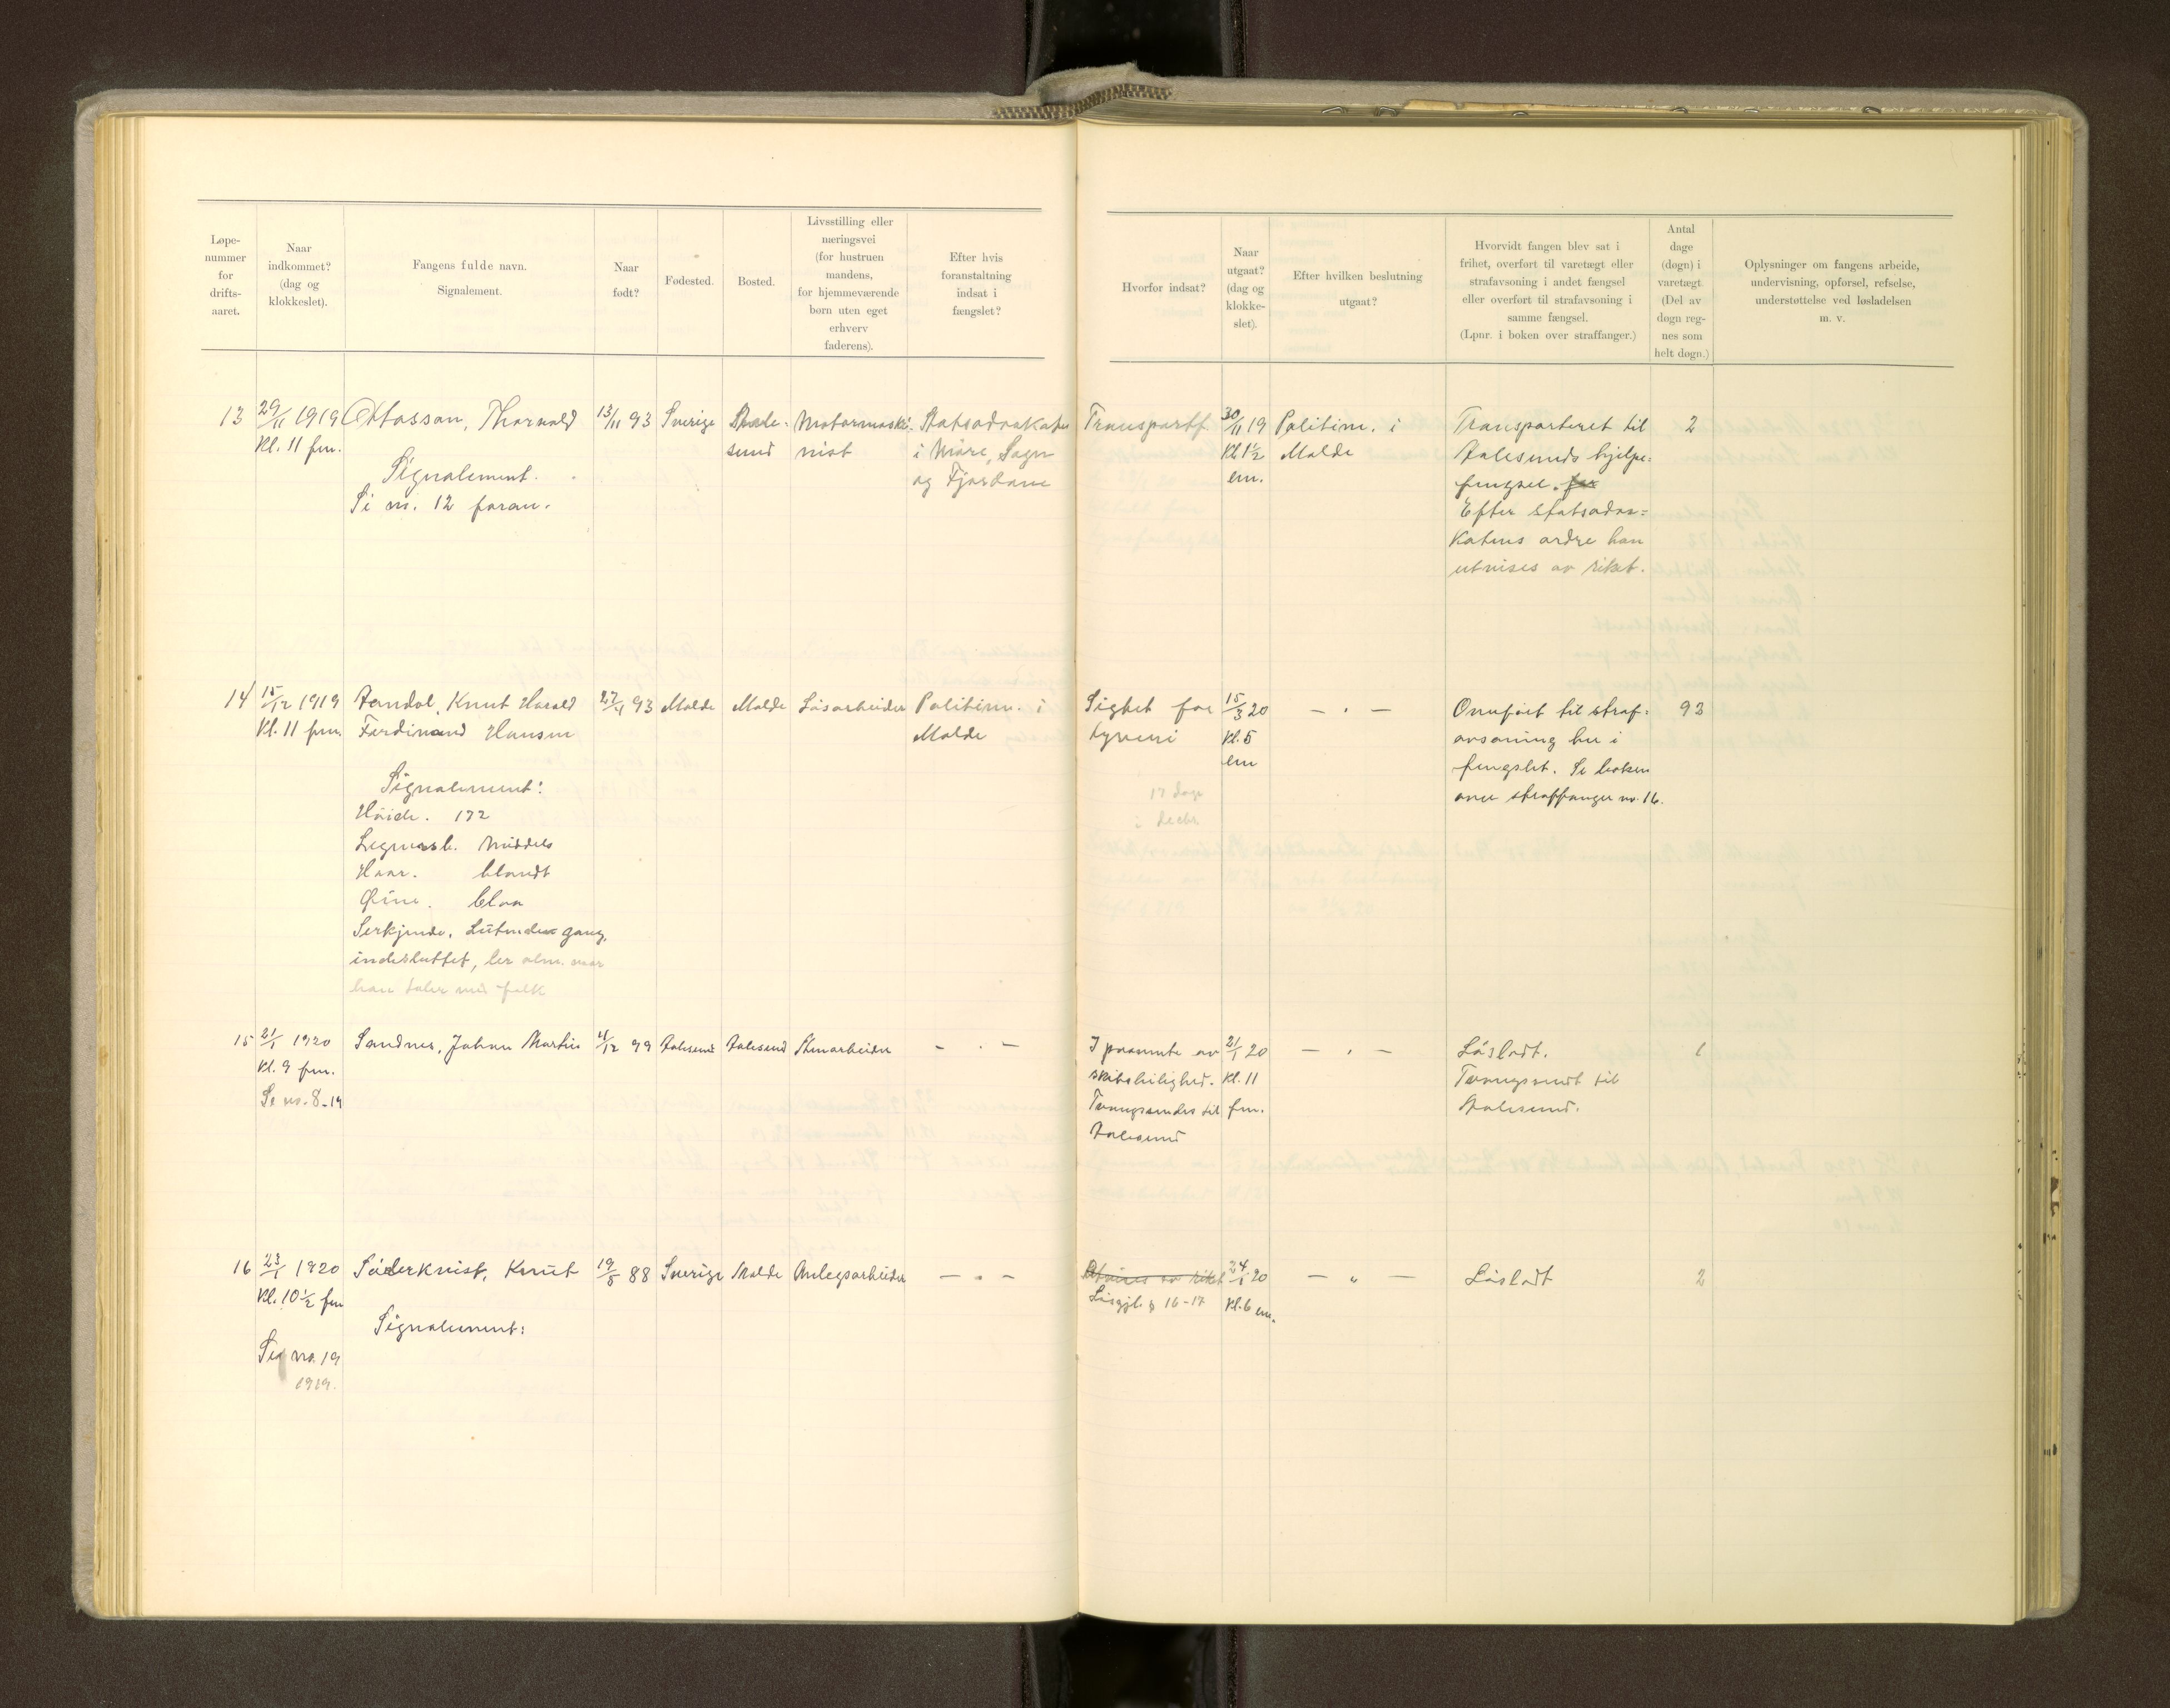 Løpe-
nummer
for
drifts-
aaret.
Naar
indkommet?
(dag og
klokkeslet).
Fangens fulde navn.
Signalement.
Naar
født?
Fødested.
Bosted.
Livsstilling eller
næringsvei
(for hustruen
mandens,
for hjemmeværende
børn uten eget
erhverv
faderens).
Efter hvis
foranstaltning
indsat i
fængslet?
Hvorfor indsat?
Naar
utgaat?
(dag og
klokke-
slet).
Efter hvilken beslutning
utgaat?
Hvorvidt fangen blev sat i
frihet, overført til varetægt eller
strafavsoning i andet fængsel
eller overført til strafavsoning i
samme fængsel.
(Lpnr. i boken over straffanger.)
Antal
dage
(døgn) i
varetægt
(Del av
døgn reg-
nes som
helt døgn.)
Oplysninger om fangens arbeide,
undervisning, opførsel, refselse,
understøttelse ved løsladelsen
m. v.
13
29/11 1919
Kl. 11 fm.
Ottosson, Thorvald
Signalement.
Se nr. 12 foran.
13/11 93
Sverige
Aale-
sund
Motormaski-
nist
Statsadvokaten
i Møre, Sogn
og Fjordane
Transportf.
30/11 19
Kl. 1½
em.
Politim. i
Molde
Transporteret til
Aalesunds hjelpe=
fengsel. for
Efter statsadvo=
katens ordre han
utvises av riket.
2
14
15/12 1919
Kl. 11 fm.
Knut Harald
Ferdinand Hansen
Signalement:
Höide. 172
Legemsb. Middels
Haar. blondt
Øine. blaa
Serkjende. Lutende gang,
indesluttet, ler alm. naar
han taler med folk
93
Molde
Molde
Løsarbeider
Politim. i
Molde
Sigtet for
tyveri
17 dage
i decbr.
15/3 20
Kl. 5
em
— " —
Overført til straf=
avsoning her i
fengslet. Se boken
over straffanger nr. 16.
93
15
21/1 1920
Kl. 9 fm.
Se nr. 8-19
Sandnes, Johan Martin
4/12 99
Aalesund
Aalesund
— " —
I paavente av
skibsleilighed.
Tvangssendes til
Aalesund
21/1 20
Kl. 11
fm.
— " —
Løsladt.
Tvangssendt til
Aalesund.
1
16
23/1 1920
Kl. 10½ fm
Se nr. 19
1919.
Søderkvist, Knut
Signalement:
19/8 88
Sverige
Molde
Anlegsarbeider
— " —
Utvises av riket
Løsgjl. § 16-17
24/1 20
Kl. 6 em.
— " —
Løsladt
2